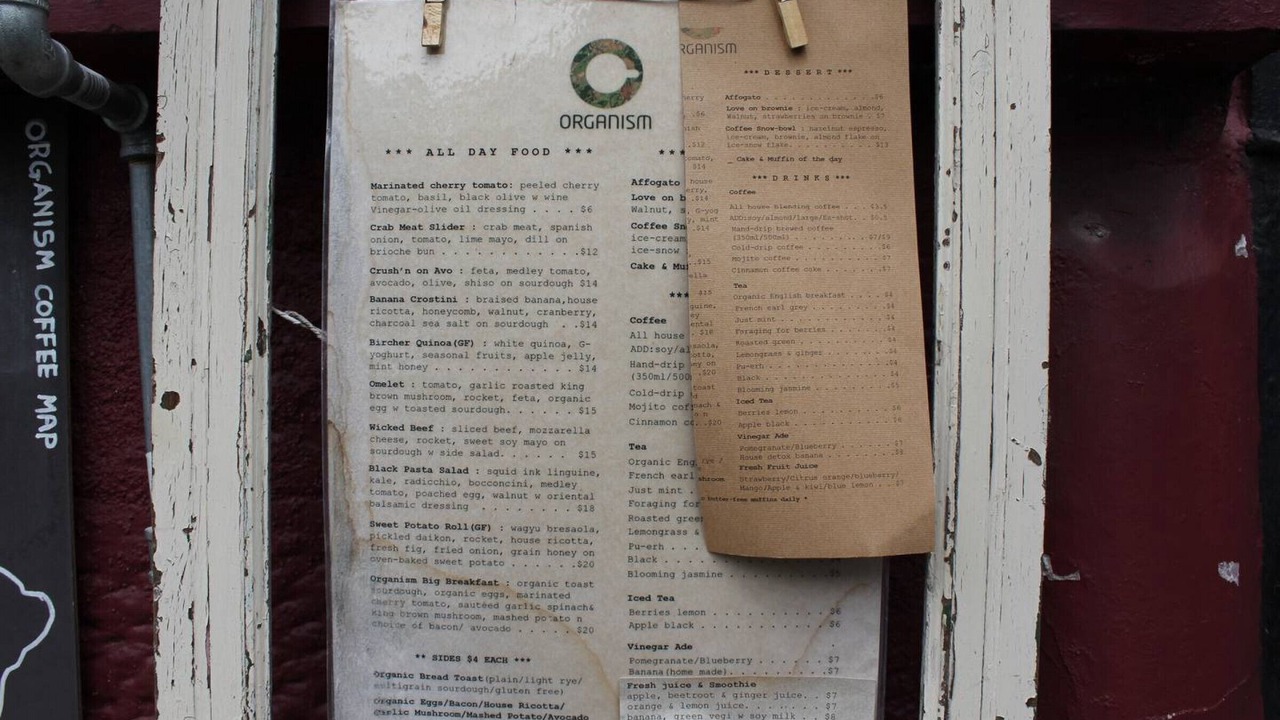 ORGANISM COFFEE MAP
ORGANISM
*** ALL DAY FOOD ***
Marinated cherry tomato: peeled cherry
tomato, basil, black olive w wine
Vinegar-olive oil dressing . . . . $6
Crab Meat Slider : crab meat, spanish
onion, tomato, lime mayo, dill on
brioche bun . . . . . . . . . . . .$12
Crush'n on Avo : feta, medley tomato,
avocado, olive, shiso on sourdough $14
Banana Crostini : braised banana,house
ricotta, honeycomb, walnut, cranberry,
charcoal sea salt on sourdough . .$14
Bircher Quinoa(GF) : white quinoa, G-
yoghurt, seasonal fruits, apple jelly,
mint honey . . . . . . . . . . . . $14
Omelet : tomato, garlic roasted king
brown mushroom, rocket, feta, organic
egg w toasted sourdough. . . . . . $15
Wicked Beef : sliced beef, mozzarella
cheese, rocket, sweet soy mayo on
sourdough w side salad. . . . . . $15
Black Pasta Salad : squid ink linguine,
kale, radicchio, bocconcini, medley
tomato, poached egg, walnut w oriental
balsamic dressing . . . . . . . . $18
Sweet Potato Roll(GF) : wagyu bresaola,
pickled daikon, rocket, house ricotta,
fresh fig, fried onion, grain honey on
oven-baked sweet potato . . . . . .$20
Organism Big Breakfast : organic toast
sourdough, organic eggs, marinated
cherry tomato, sauteed garlic spinach&
king brown mushroom, mashed potato n
choice of bacon/ avocado . . . . . $20
** SIDES $4 EACH ***
Organic Bread Toast(plain/light rye/
multigrain sourdough/gluten free)
Organic Eggs/Bacon/House Ricotta/
Garlic Mushroom/Mashed Potato/Avocado
***
Affogato
Love on b
Walnut, s
Coffee Sn
ice-cream
ice-snow
Cake & Mu
***
Coffee
All house
ADD:soy/al
Hand-drip
(350ml/500
Cold-drip
Mojito cof
Cinnamon c
Tea
Organic Eng
French earl
Just mint .
Foraging for
Roasted green
Lemongrass &
Pu-erh . .
Black . . .
Blooming jasmine . . . . . . . . .$5
Iced Tea
Berries lemon . . . . . . . . . . $6
Apple black . . . . . . . . . . . $6
Vinegar Ade
Pomegranate/Blueberry . . . . . . $7
Banana(home made). . . . . . . . .$7
Fresh juice & Smoothie
apple, beetroot & ginger juice. . $7
orange & lemon juice. . . . . . . $7
banana, green vegi w soy milk . . $8
RGANISM
*** DESSERT ***
Affogato . . . . . . . . . . . . .$6
Love on brownie : ice-cream, almond,
Walnut, strawberries on brownie . $7
Coffee Snow-bowl : hazelnut espresso,
ice-cream, brownie, almond flake on
ice-snow flake. . . . . . . . . . $13
_ Cake & Muffin of the day
*** DRINKS ***
Coffee
All house blending coffee . . . .$3.5
ADD:soy/almond/large/Ex-shot. . .$0.5
Hand-drip brewed coffee
(350ml/500ml) . . . . . . . . .$7/$9
Cold-drip coffee . . . . . . . . .$6
Mojito coffee. . . . . . . . . . .$7
Cinnamon coffee coke . . . . . . .$7
Tea
Organic English breakfast . . . . $4
French earl grey . . . . . . . . .$4
Just mint . . . . . . . . . . . . $4
Foraging for berries . . . . . . .$4
Roasted green . . . . . . . . . . $4
Lemongrass & ginger . . . . . . . $4
Pu-erh . . . . . . . . . . . . . .$4
Black . . . . . . . . . . . . . . $4
Blooming jasmine . . . . . . . . .$5
Iced Tea
Berries lemon . . . . . . . . . . $6
Apple black . . . . . . . . . . . $6
Vinegar Ade
Pomegranate/Blueberry . . . . . . $7
House detox banana . . . . . . . .$8
Fresh Fruit Juice
Strawberry/Citrus orange/blueberry/
Mango/Apple & kiwi/blue lemon . . $7
butter-free muffins daily *